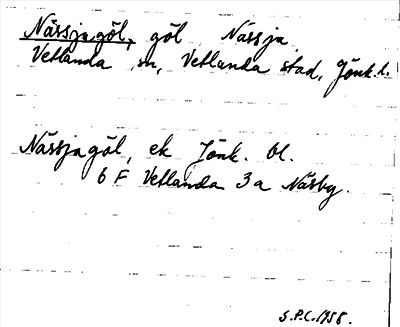 Nässjagöl, göl Nässja.
Vetlanda sn, Vetlanda stad, Jönk. l.
Nässjagöl, ek Jönk. bl.
6 F Vetlanda 3a Näsby.
S.P.C. 1958.